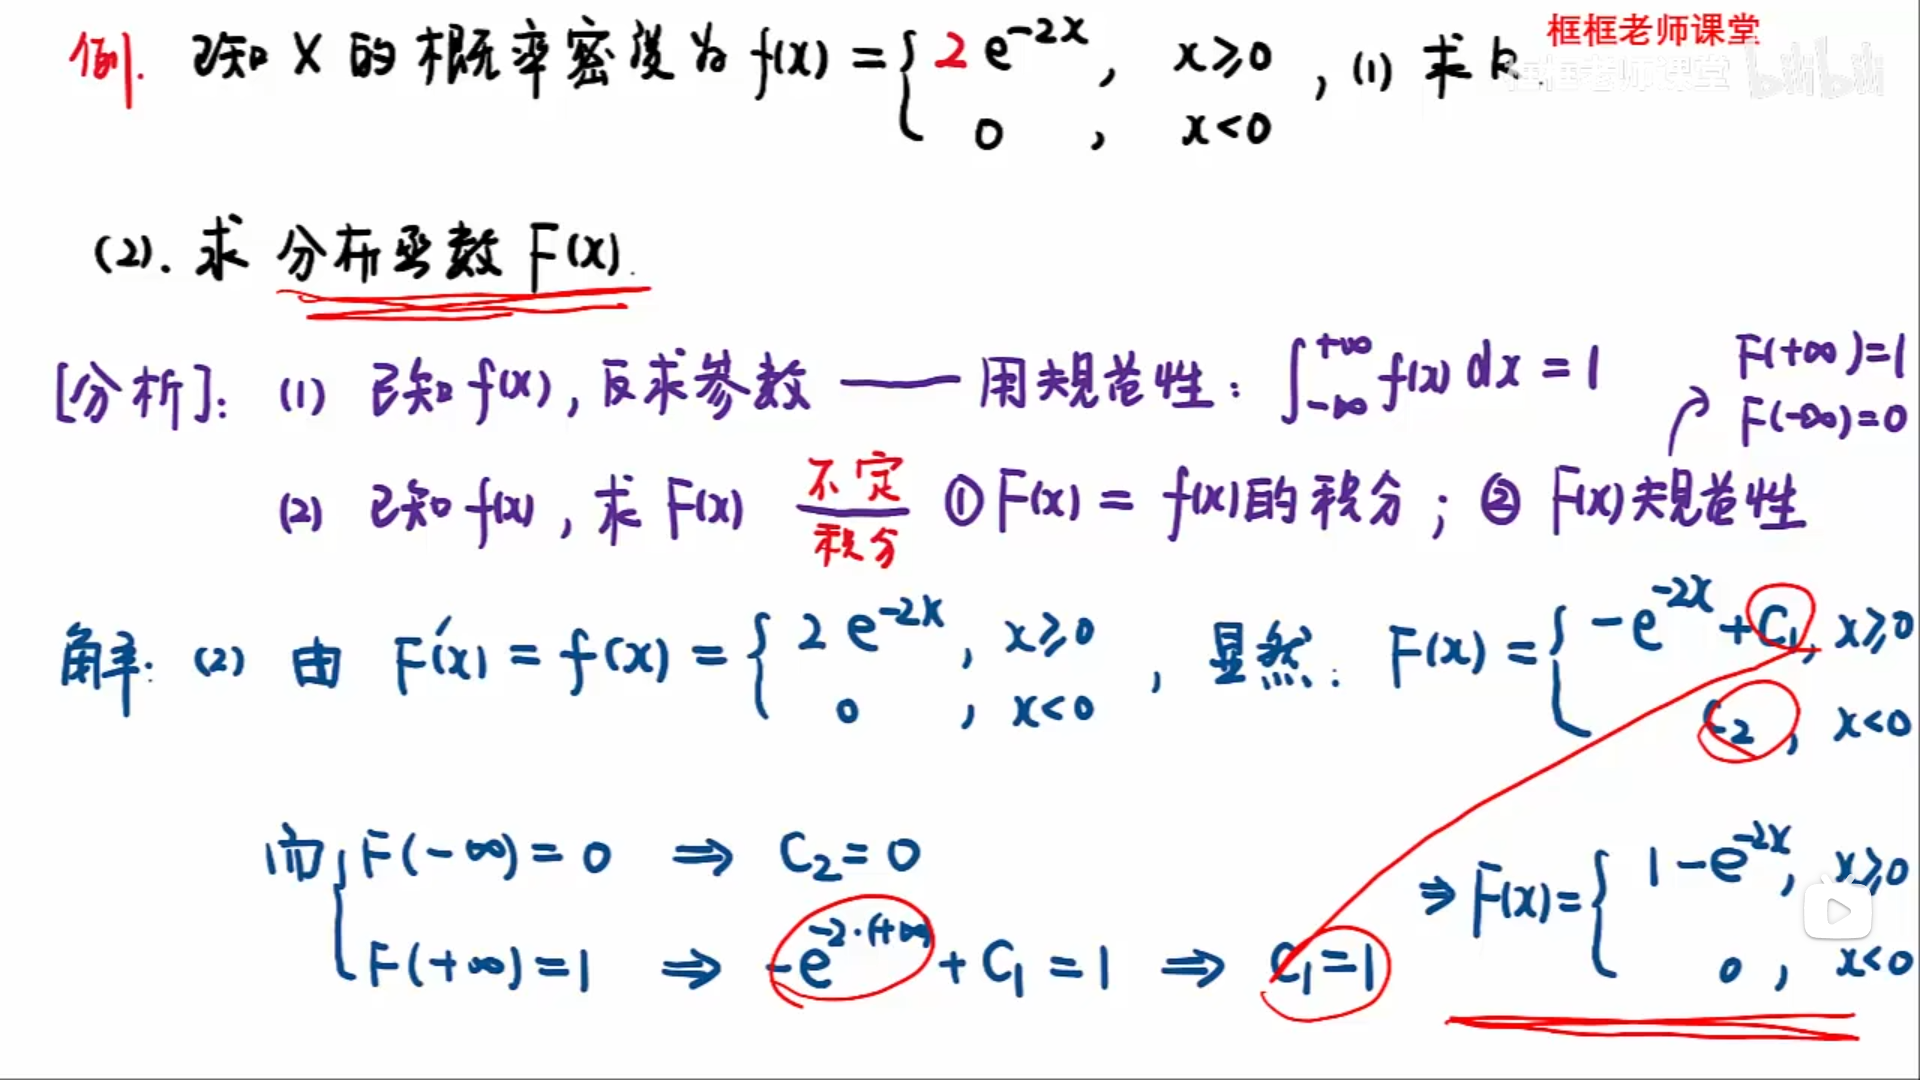 框框老师课堂
框框老师课堂 bilibili
例. 已知 X 的概率密度为 f(x) = { 2e^{-2x}, x≥0 , (1) 求 k.
0 , x<0
(2). 求 分析函数 F(x).
[分析]: (1) 已知 f(x), 反求参数 —— 用规范性: ∫_{-∞}^{+∞} f(x) dx = 1
F(+∞)=1
F(-∞)=0
(2) 已知 f(x), 求 F(x) 不定积分 ① F(x) = f(x)的积分; ② F(x)规范性
解: (2) 由 F'(x) = f(x) = { 2e^{-2x}, x≥0 , 显然: F(x) = { -e^{-2x}+C₁, x≥0
0 , x<0 C₂, x<0
而 { F(-∞) = 0 ⇒ C₂ = 0
F(+∞) = 1 ⇒ -e^{-2·(+∞)} + C₁ = 1 ⇒ C₁=1
⇒ F(x) = { 1-e^{-2x}, x≥0
0 , x<0